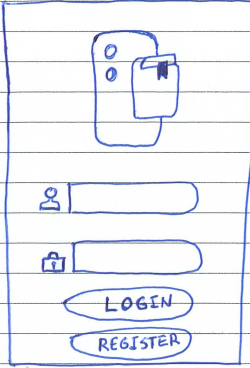 LOGIN
REGISTER